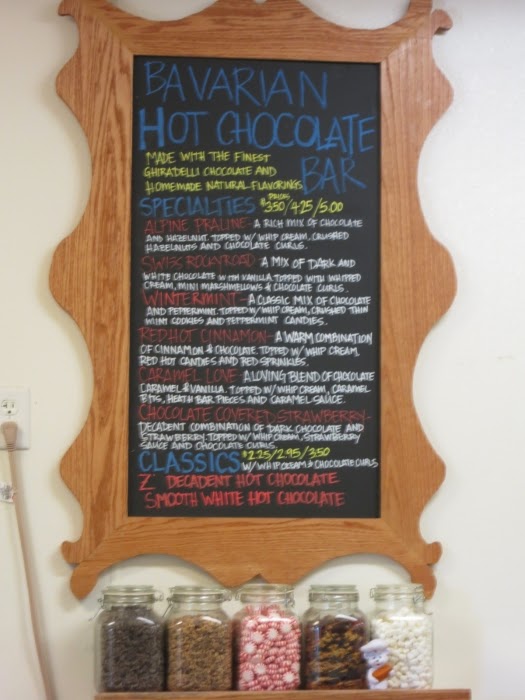 BAVARIAN
HOT CHOCOLATE
BAR
MADE WITH THE FINEST
GHIRADELLI CHOCOLATE AND
HOMEMADE NATURAL FLAVORINGS
PRICES
SPECIALTIES $3.50/4.25/5.00
ALPINE PRALINE - A RICH MIX OF CHOCOLATE
AND HAZELNUT. TOPPED W/ WHIP CREAM, CRUSHED
HAZELNUTS AND CHOCOLATE CURLS.
SWISS ROCKYROAD - A MIX OF DARK AND
WHITE CHOCOLATE WITH VANILLA TOPPED WITH WHIPPED
CREAM, MINI MARSHMELLOWS & CHOCOLATE CURLS.
WINTERMINT - A CLASSIC MIX OF CHOCOLATE
AND PEPPERMINT. TOPPED W/ WHIP CREAM, CRUSHED THIN
MINT COOKIES AND PEPPERMINT CANDIES.
RED HOT CINNAMON - A WARM COMBINATION
OF CINNAMON & CHOCOLATE. TOPPED W/ WHIP CREAM,
RED HOT CANDIES AND RED SPRINKLES.
CARAMEL LOVE - A LOVING BLEND OF CHOCOLATE
CARAMEL & VANILLA. TOPPED W/ WHIP CREAM, CARAMEL
BITS, HEATH BAR PIECES AND CARAMEL SAUCE.
CHOCOLATE COVERED STRAWBERRY -
DECADENT COMBINATION OF DARK CHOCOLATE AND
STRAWBERRY. TOPPED W/ WHIP CREAM, STRAWBERRY
SAUCE AND CHOCOLATE CURLS.
CLASSICS $2.25/2.95/3.50
W/ WHIP CREAM & CHOCOLATE CURLS
DECADENT HOT CHOCOLATE
SMOOTH WHITE HOT CHOCOLATE